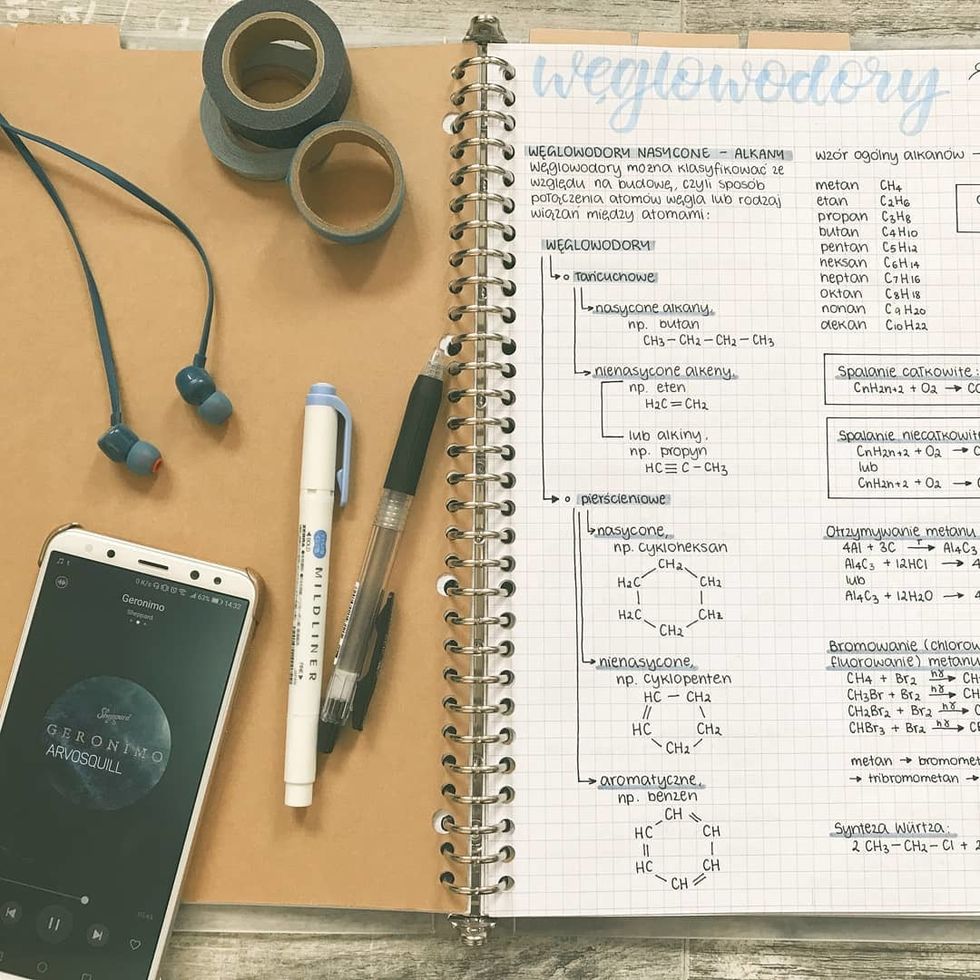 węglowodory
WĘGLOWODORY NASYCONE - ALKANY
węglowodory można klasyfikować ze
względu na budowę, czyli sposób
połączenia atomów węgla lub rodzaj
wiązań między atomami:
WĘGLOWODORY
łańcuchowe
nasycone alkany,
np. butan
CH3 — CH2 — CH2 — CH3
nienasycone alkeny,
np. eten
H2C = CH2
lub alkiny,
np. propyn
HC ≡ C — CH3
pierścieniowe
nasycone,
np. cykloheksan
CH2
H2C CH2
H2C CH2
CH2
nienasycone,
np. cyklopenten
HC — CH2
HC CH2
CH2
aromatyczne,
np. benzen
CH
HC CH
HC CH
CH
wzór ogólny alkanów →
metan CH4
etan C2H6
propan C3H8
butan C4H10
pentan C5H12
heksan C6H14
heptan C7H16
oktan C8H18
nonan C9H20
dekan C10H22
Spalanie całkowite:
CnH2n+2 + O2 → CO
Spalanie niecałkowite
CnH2n+2 + O2 → C
lub
CnH2n+2 + O2 → C
Otrzymywanie metanu
4Al + 3C →T Al4C3
Al4C3 + 12HCl → 4
lub
Al4C3 + 12H2O → 4
Bromowanie (chlorow
fluorowanie) metanu
CH4 + Br2 →hγ CH
CH3Br + Br2 →hγ CH
CH2Br2 + Br2 →hγ C
CHBr3 + Br2 →hγ C
metan → bromomet
→ tribromometan →
Synteza Würtza:
2 CH3 — CH2 — Cl + 2
MILDLINER
0 K/s 63% 14:32
Geronimo
Sheppard
Sheppard
GERONIMO
ARVOSQUILL